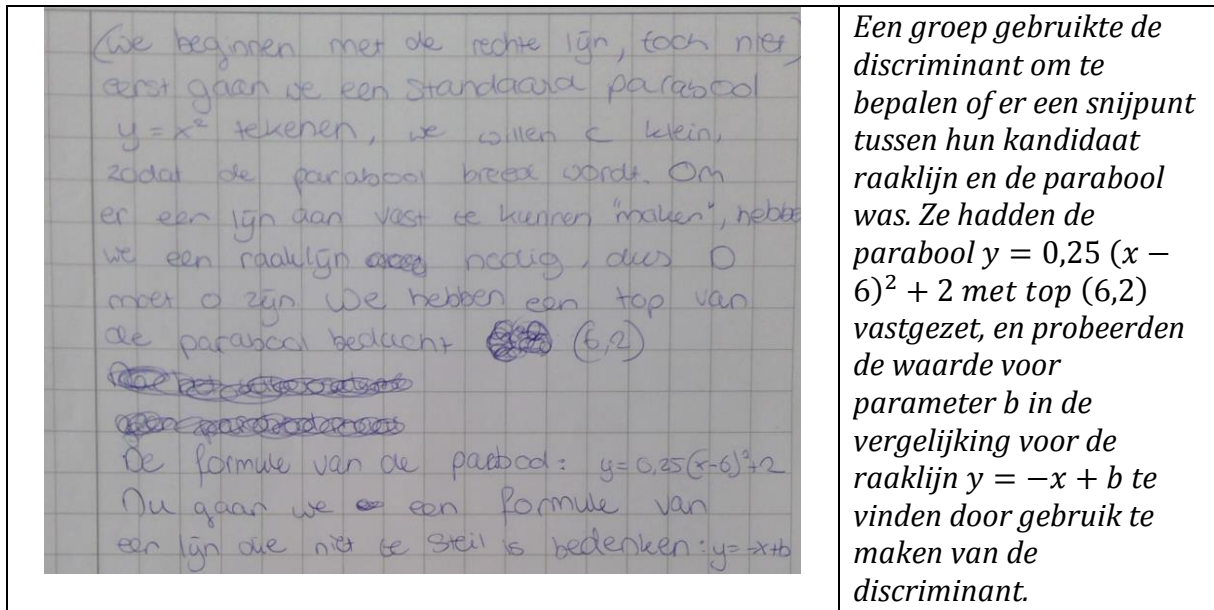 (We beginnen met de rechte lijn, toch niet)
eerst gaan we een standaard parabool
y = x² tekenen, we willen c klein,
zodat de parabool breed wordt. Om
er een lijn aan vast te kunnen "maken", hebbe
we een raaklijn nodig, dus D
moet 0 zijn We hebben een top van
de parabool bedacht (6,2)
De formule van de parabool: y= 0,25(x-6)²+2
Nu gaan we een formule van
een lijn die niet te steil is bedenken: y=-x+b
Een groep gebruikte de
discriminant om te
bepalen of er een snijpunt
tussen hun kandidaat
raaklijn en de parabool
was. Ze hadden de
parabool y = 0,25 (x −
6)² + 2 met top (6,2)
vastgezet, en probeerden
de waarde voor
parameter b in de
vergelijking voor de
raaklijn y = −x + b te
vinden door gebruik te
maken van de
discriminant.